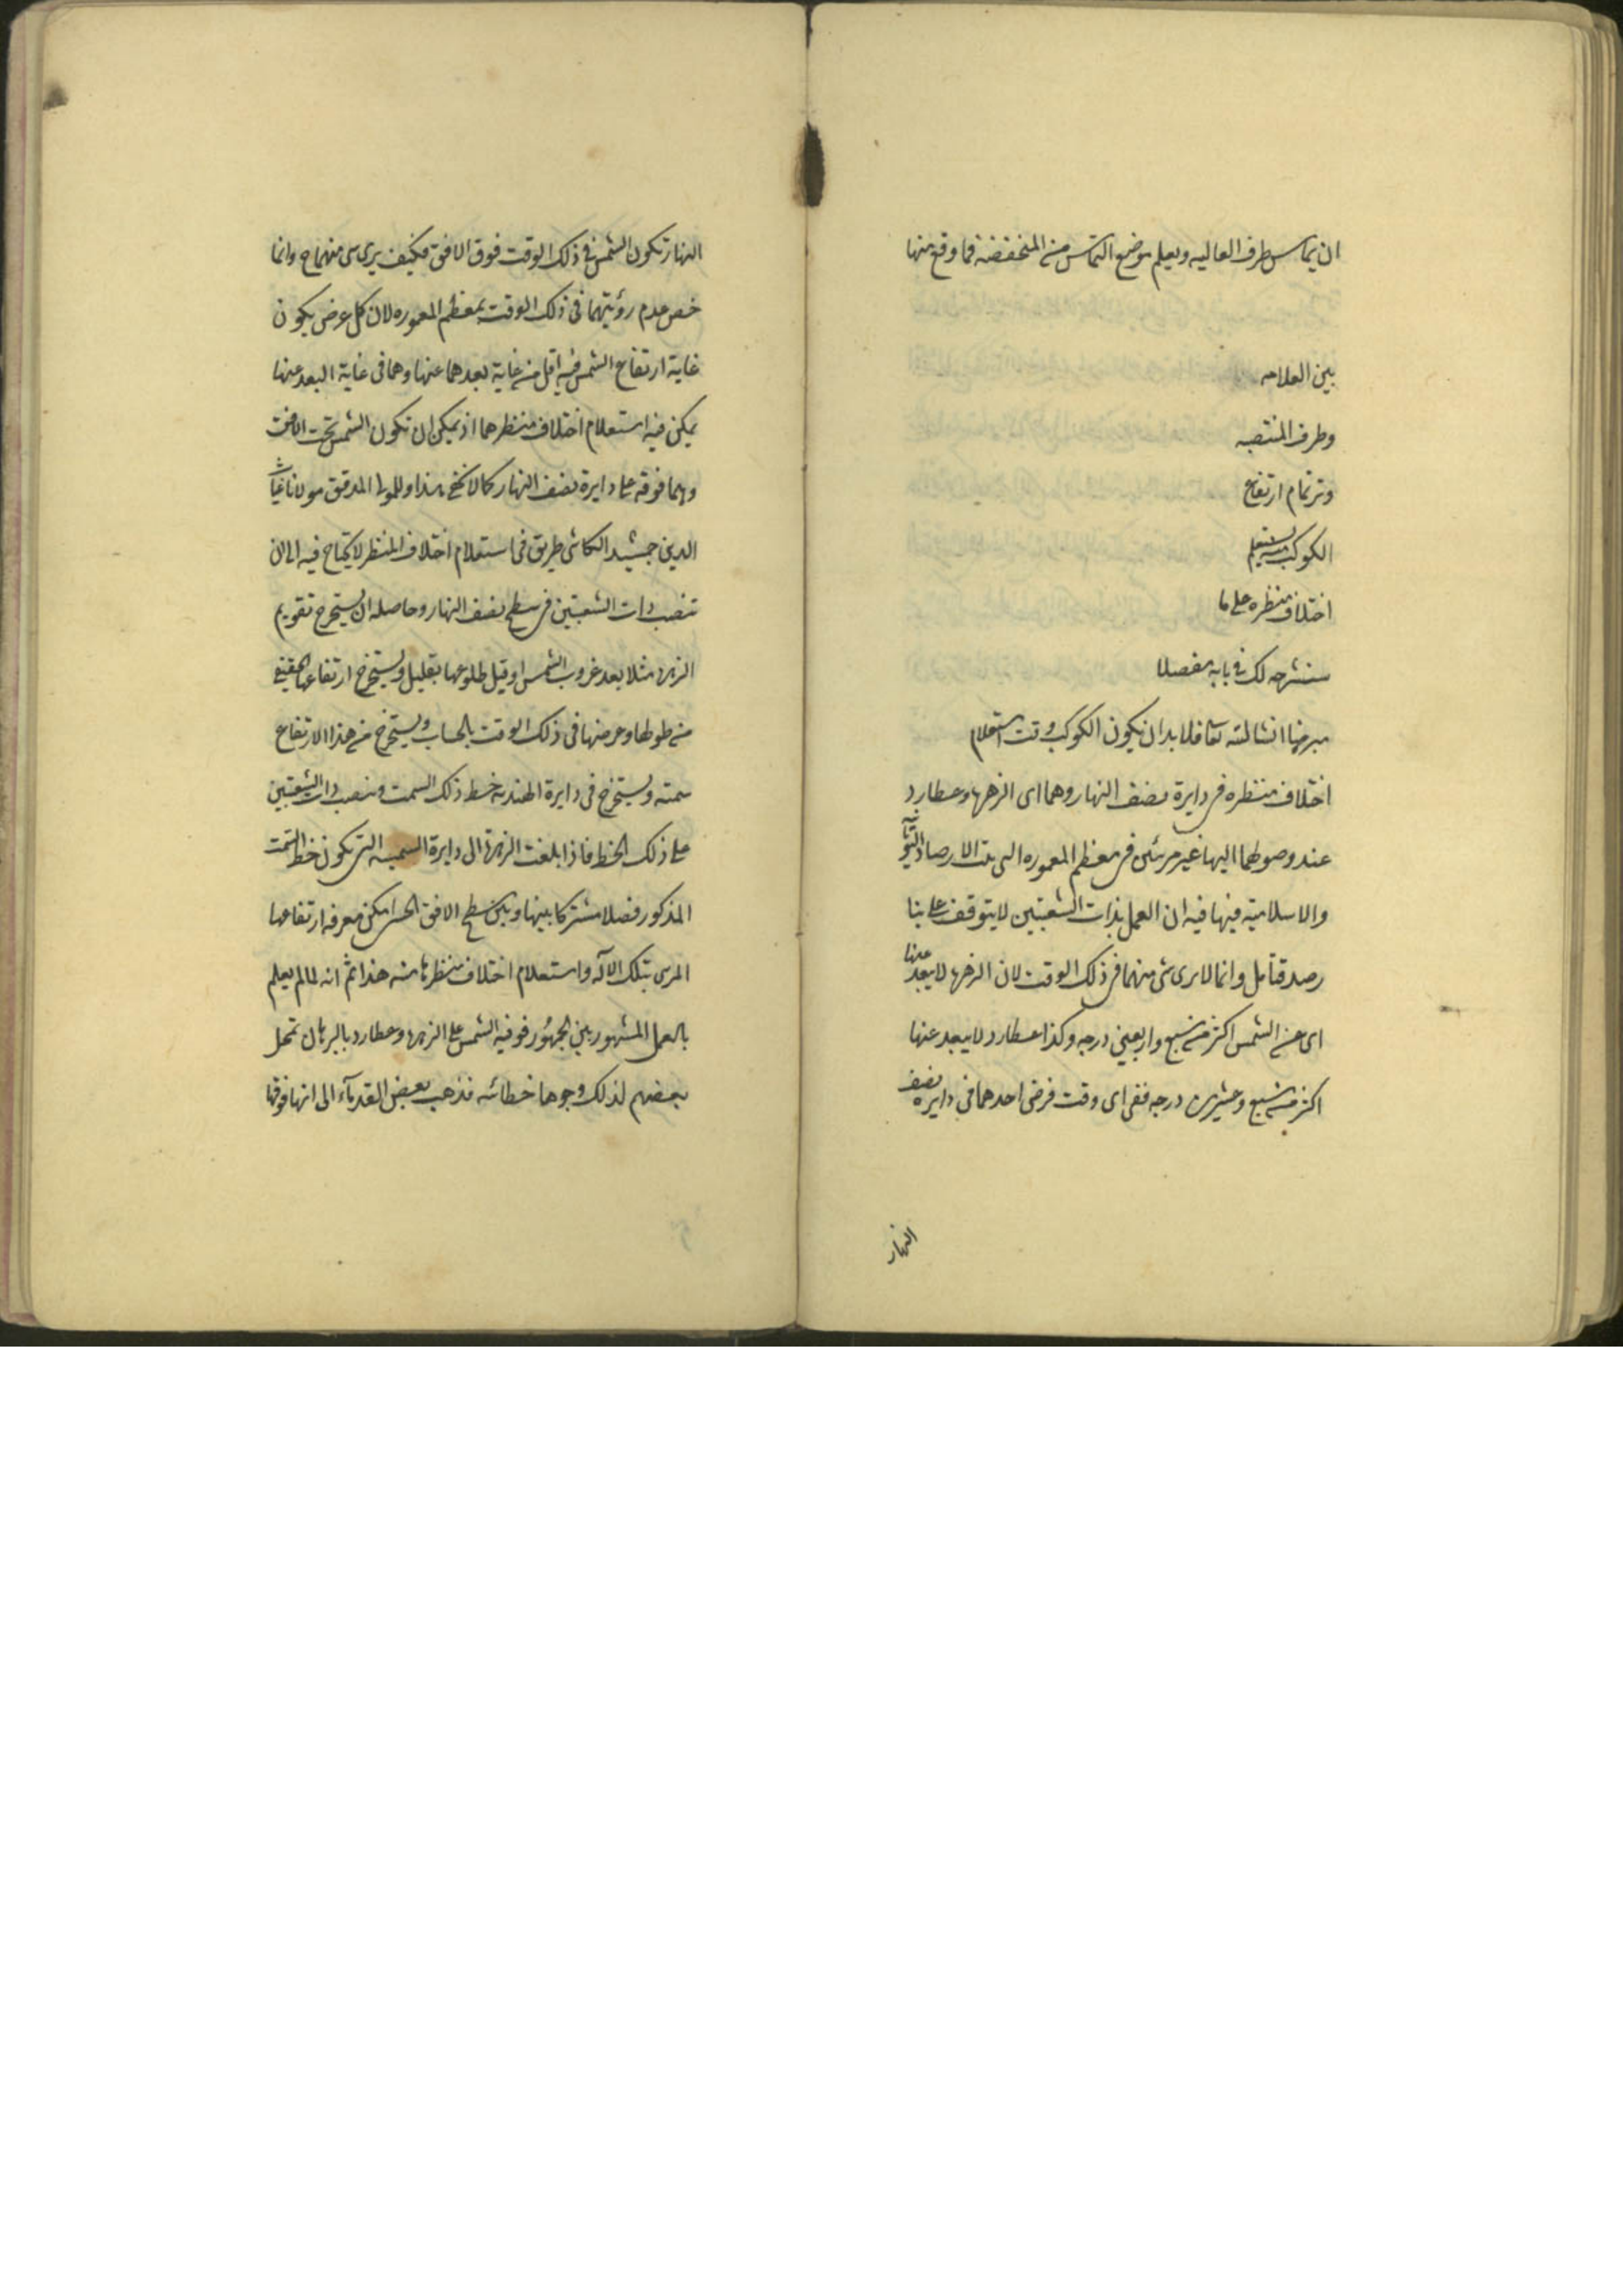 ان يماس طرف العاليه ويعلم موضع التماس من المنخفضة فما وقع منها
بين العلامه
وطرف المنتصبه
وتر تمام ارتفاع
الكوكب يستعلم منه
اختلاف منظره على ما
سنشرحه لك فى بابه مفصلا
مبرهنا انشا لله تعا فلا بد ان يكون الكوكب وقت استعلام
اختلاف منظره فى دايرة نصف النهار وهما اى الزهره وعطارد
عند وصولهما اليها غير مرئيين فى معظم المعموره التى بنت الارصاد اليونانيه
والاسلاميه فيها فيه ان العمل بذات الشعبتين لا يتوقف على بنا
رصد فتأمل وانما لا يرى شى منهما فى ذلك الوقت لان الزهره لا يبعد عنها
اى عن الشمس اكثر من سبع واربعين درجه وكذا عطارد لا يبعد عنها
اكثر من سبع وعشرين درجه ففى اى وقت فرض احدهما فى دايره نصف
النهار
النهار تكون الشمس فى ذلك الوقت فوق الافق فكيف يرى شى منهما ح وانما
خص عدم رؤيتهما فى ذلك الوقت بمعظم المعموره لان كل عرض يكون
غاية ارتفاع الشمس فيه اقل من غاية بعدهما عنها وهما فى غاية البعد عنها
يمكن فيه استعلام اختلاف منظرهما اذ يمكن ان تكون الشمس تحت الافق
وهما فوقه على دايرة نصف النهار كما لا يخفى هذا وللمولى المدقق مولانا غياث
الدين جمشيد الكاشى طريق فى استعلام اختلاف المنظر لا يحتاج فيه الى ان
تنصب ذات الشعبتين فى سطح نصف النهار وحاصله ان يستخرج تقويم
الزهره مثلا بعد غروب الشمس او قبل طلوعها بقليل ويستخرج ارتفاعها الحقيقى
من طولها وعرضها فى ذلك الوقت بالحساب ويستخرج من هذا الارتفاع
سمته ويستخرج فى دايرة الهنديه خط ذلك السمت وينصب ذات الشعبتين
على ذلك الخط فاذا بلغت الزهرة الى دايرة السمتيه التى يكون خط السمت
المذكور فصلا مشتركا بينها وبين سطح الافق الحسى امكن معرفه ارتفاعها
المرى بتلك الآله واستعلام اختلاف منظرها منه هذا ثم انه لما لم يعلم
بالعمل المشهور بين الجمهور فوقيه الشمس على الزهره وعطارد بالبرهان تمحل
بعضهم لذلك وجوها خطائيه فذهب بعض القدمآء الى انها فوقها